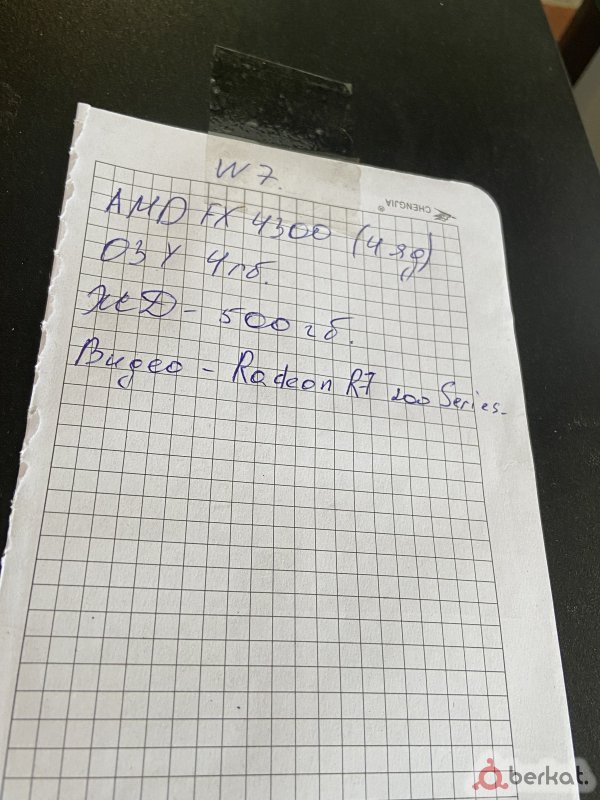 W 7.
CHENGJIA
AMD FX 4300 (4 яд)
ОЗУ 4 гб.
ЖД - 500 гб.
Видео - Radeon R7 200 Series.
berkat.